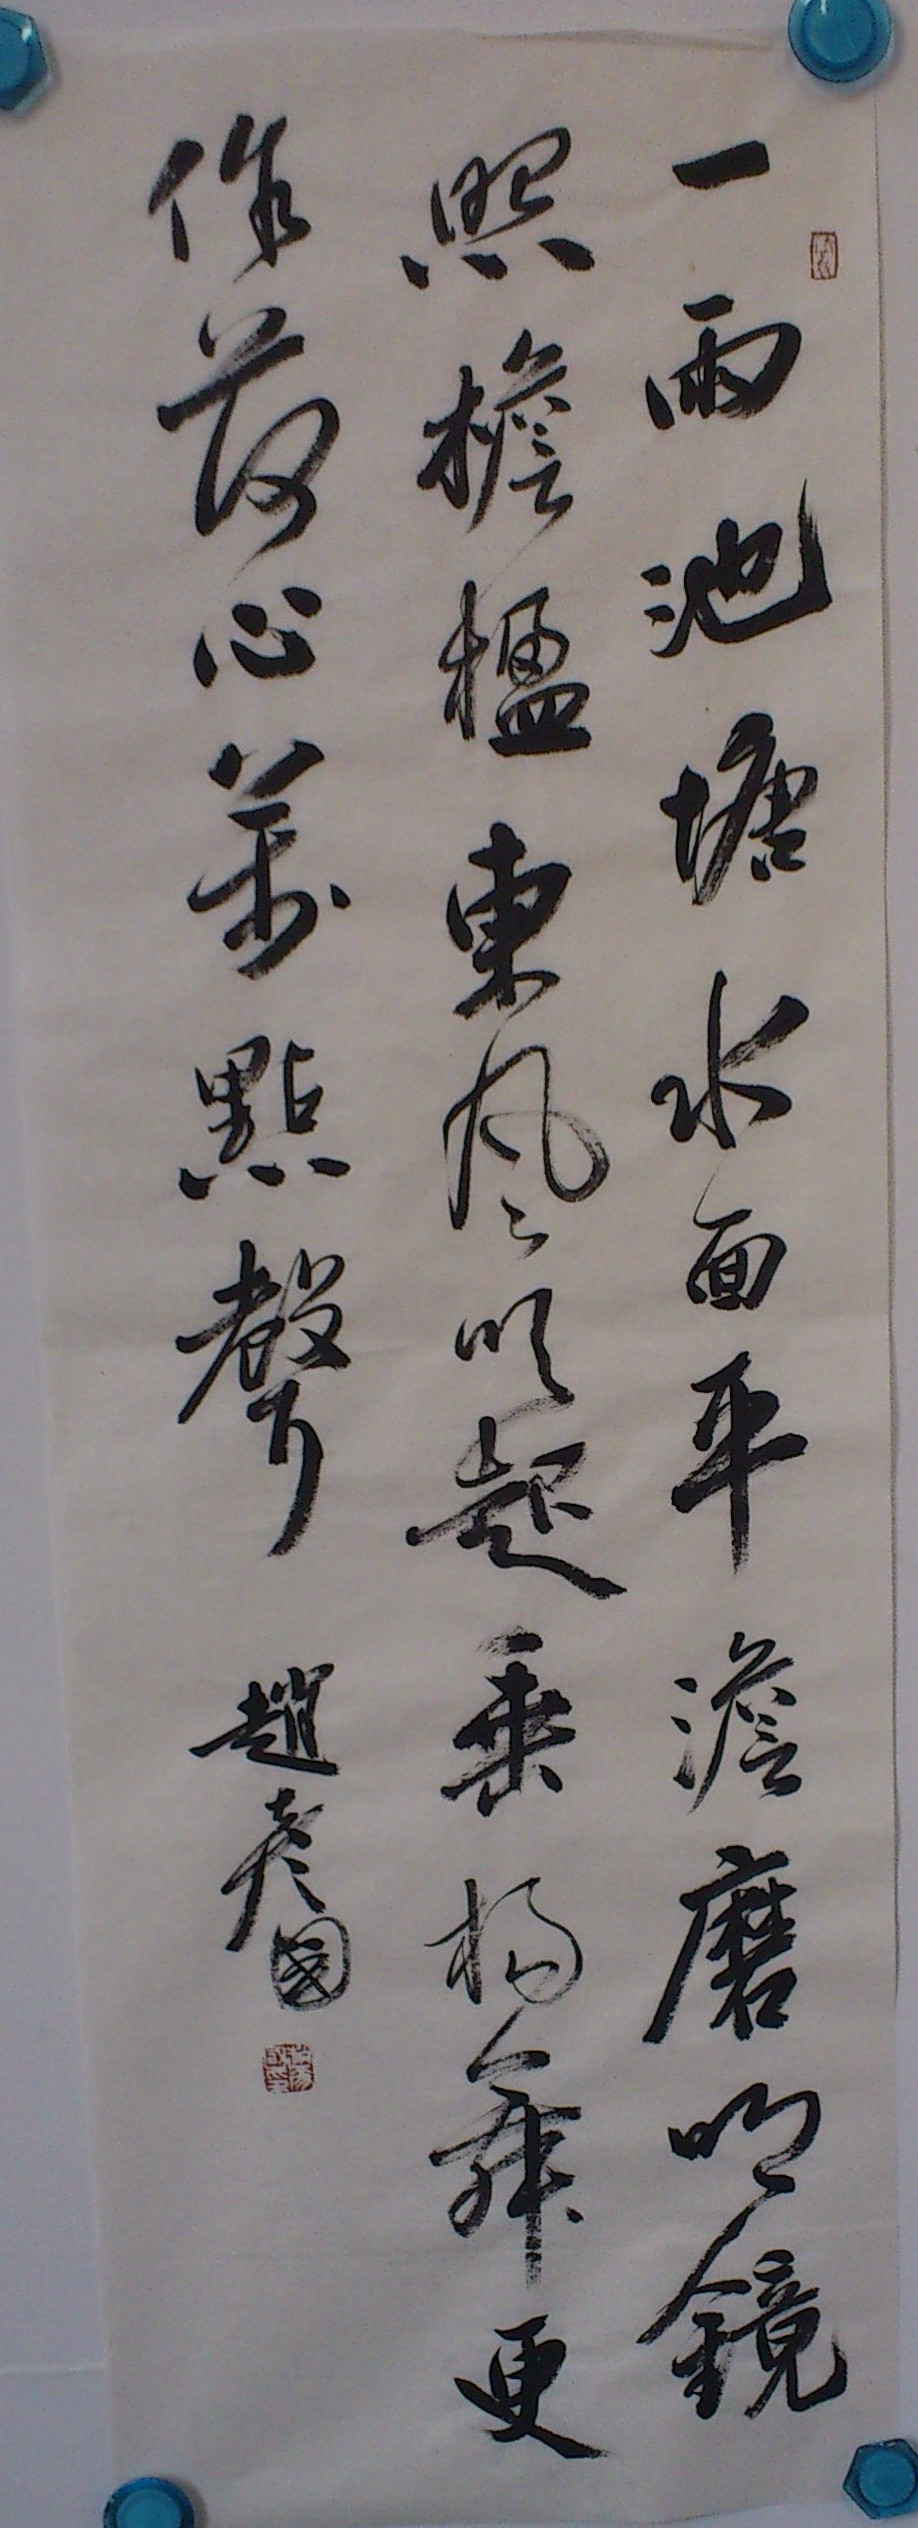 一雨池塘水面平澹磨明鏡
照檐楹東風吹起垂楊舞更
作荷心萬點聲 趙國